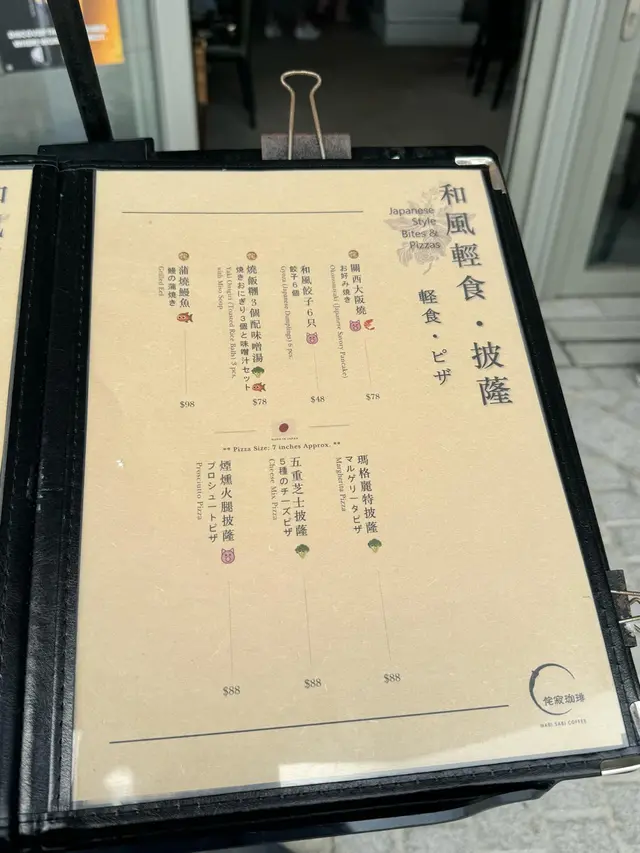 和風輕食・披薩
Japanese
Style
Bites &
Pizzas
軽食・ピザ
關西大阪燒
お好み焼き
Okonomiyaki (Japanese Savory Pancake)
$78
和風餃子6只
餃子6個
Gyoza (Japanese Dumplings) 6 pcs.
$48
燒飯糰3個配味噌湯
焼きおにぎり3個と味噌汁セット
Yaki Onigiri (Toasted Rice Balls) 3 pcs.
with Miso Soup
$78
蒲燒鰻魚
鰻の蒲焼き
Grilled Eel
$98
** Pizza Size: 7 inches Approx. **
瑪格麗特披薩
マルゲリータピザ
Margherita Pizza
$88
五重芝士披薩
5種のチーズピザ
Cheese Mix Pizza
$88
煙燻火腿披薩
プロシュートピザ
Prosciutto Pizza
$88
侘寂珈琲
WABI SABI COFFEE